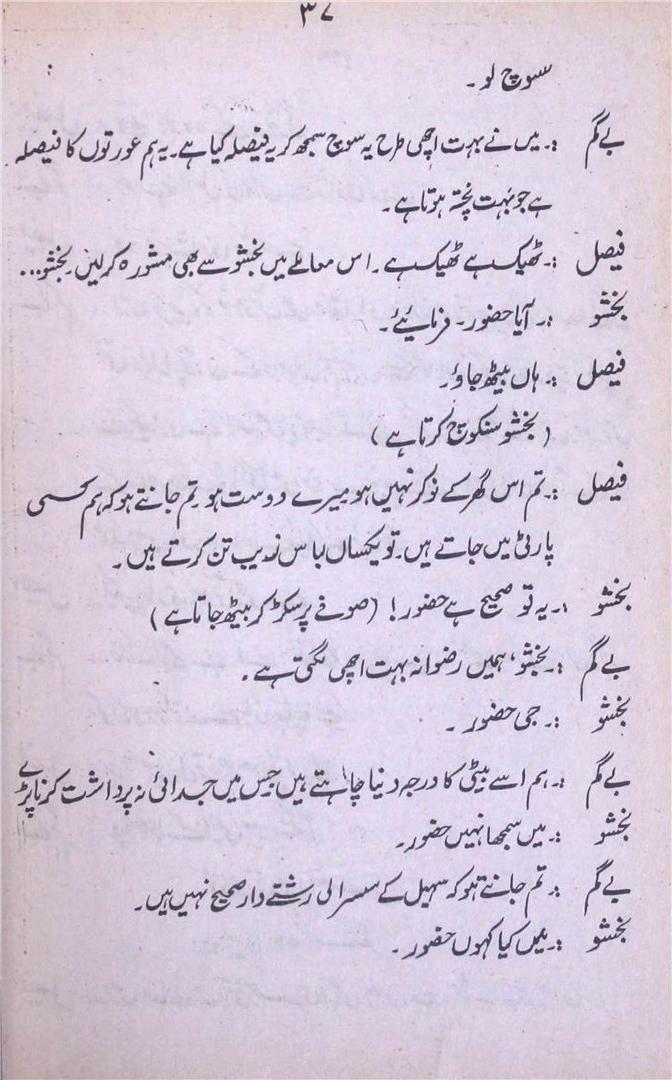 ۳۷
سوچ لو۔
بے گم :۔ میں نے بہت اچھی طرح یہ سوچ سمجھ کر یہ فیصلہ کیا ہے۔ یہ ہم عورتوں کا فیصلہ
ہے جو بہت پختہ ہوتا ہے۔
فیصل :۔ ٹھیک ہے ٹھیک ہے۔ اس معاملے میں بخشو سے بھی مشورہ کر لیں۔ بخشو...
بخشو :۔ آیا حضور۔ فرمایئے۔
فیصل :۔ ہاں بیٹھ جاؤ۔
(بخشو سنکوچ کرتا ہے)
فیصل :۔ تم اس گھر کے نوکر نہیں ہو میرے دوست ہو۔ تم جانتے ہو کہ ہم کسی
پارٹی میں جاتے ہیں۔ تو یکساں لباس زیب تن کرتے ہیں۔
بخشو :۔ یہ تو صحیح ہے حضور! (صوفے پر سکڑ کر بیٹھ جاتا ہے)
بے گم :۔ بخشو، ہمیں رضوانہ بہت اچھی لگتی ہے۔
بخشو :۔ جی حضور۔
بے گم :۔ ہم اسے بیٹی کا درجہ دنیا چاہتے ہیں جس میں جدائی نہ برداشت کرنا پڑے
بخشو :۔ میں سمجھا نہیں حضور۔
بے گم :۔ تم جانتے ہو کہ سہیل کے سسرالی رشتے دار صحیح نہیں ہیں۔
بخشو :۔ میں کیا کہوں حضور۔